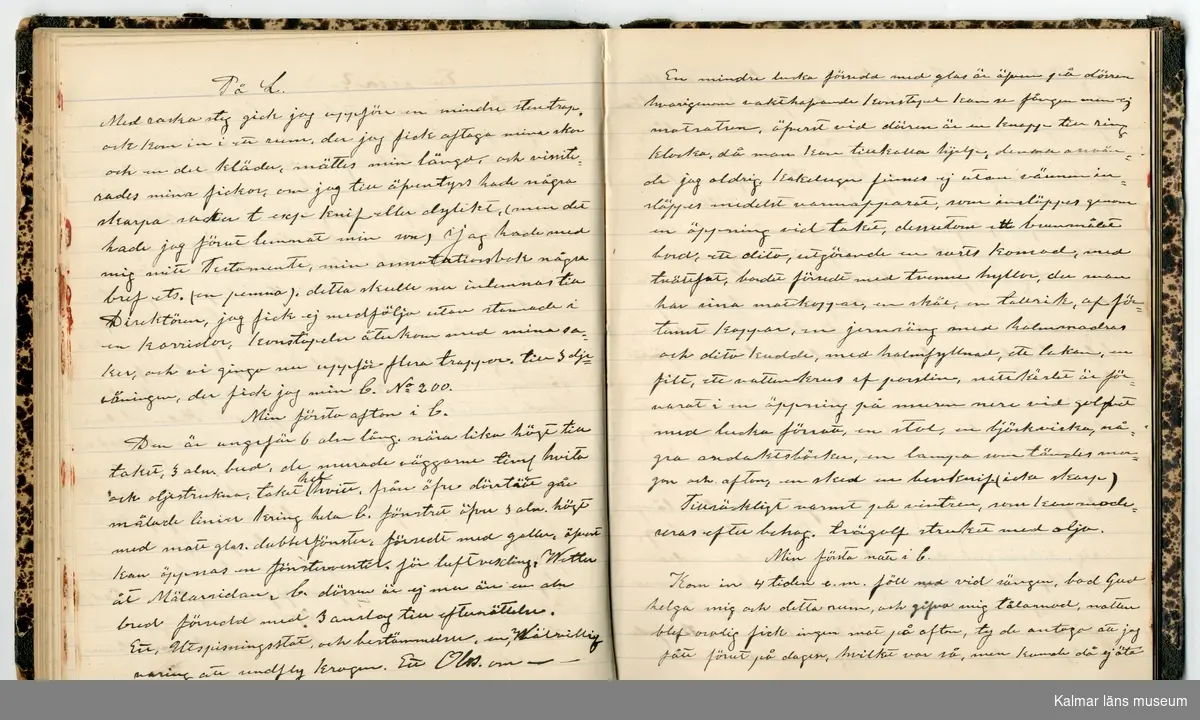 På L.
Med raska steg gick jag uppför en mindre stentrap,
och kom in i ett rum, der jag fick aftaga mina skor
och en del kläder, mättes min längd, och visite-
rades mina fickor, om jag till äfventyrs hade några
skarpa saker t exp knif eller dylikt, (men det
hade jag förut lemnat min son) jag hade med
mig mitt Testamente, min annotationsbok några
bref ets. (en penna). detta skulle nu inlemnas till
Direktören, jag fick ej medfölja utan stannade i
en korridor, Konstapeln återkom med mina sa-
ker, och vi gingo nu uppför flera trappor till 3dje
våningen, der fick jag min C. No 200.
Min första afton i C.
Den är ungefär 6 aln lång. nära lika högt till
taket, 3 aln. bred, de murade väggarne hvita
och oljestrukna, taket helt hvitt, från öfre går
målade linier kring hela C. fönstret öfre 3 aln. högt
med matt glas. dubbelfönster, försedt med galler, öfverst
kan öppnas en fönsterventil, för luftvexling, Wetter
åt Mälarsidan, C. dörren är ej mer än en aln
bred försedd med 3 anslag till efterrättelse.
Ett, Utspisningsstat, och bestämmelse, en,
varing att undfly krogen. Ett Obs. om — —
En mindre lucka försedd med glas är äfven på dörren
hvarigenom vakthafande Konstapel kan se fången men ej
motsatsen, öfverst vid dörren är en knapp till ring
klocka, då man kan tillkalla hjelp, denna använ-
de jag aldrig, Kakelugn finnes ej utan värmen in-
släppes medelst varmapparat, som insläppes genom
en öppning vid taket, dessutom ett brunmålat
bord, ett dito, utgörande en sorts Komod, med
tvättfat, bordet försedt med tvenne hyllor, der man
har sina matkoppar, en skål, en tallrik, af för-
tent koppar, en jernsäng med halmmadras
och dito kudde, med halmfyllnad, ett lakan, en
filt, ett vatten krus af porslin, nattkärlet är för-
varat i en öppning på muren nere vid golfvet
med lucka förrut, en stol, en björkviska, nå-
gra andaktsböcker, en lampa som tändes mor-
gon och afton, en sked en benknif, (icke skarp)
Tillräckligt varmt på vintren, som kan mode-
reras efter behag. trägolf struket med olja.
Min första natt i C.
Kom in 4 tiden e.m. föll ned vid sängen, bad Gud
helga mig och detta rum, och gifva mig tålamod, natten
blef orolig fick ingen mat på afton, ty de antogo att jag
fått förut på dagen, hvilket var så, men kunde då ej äta
Kalmar läns museum